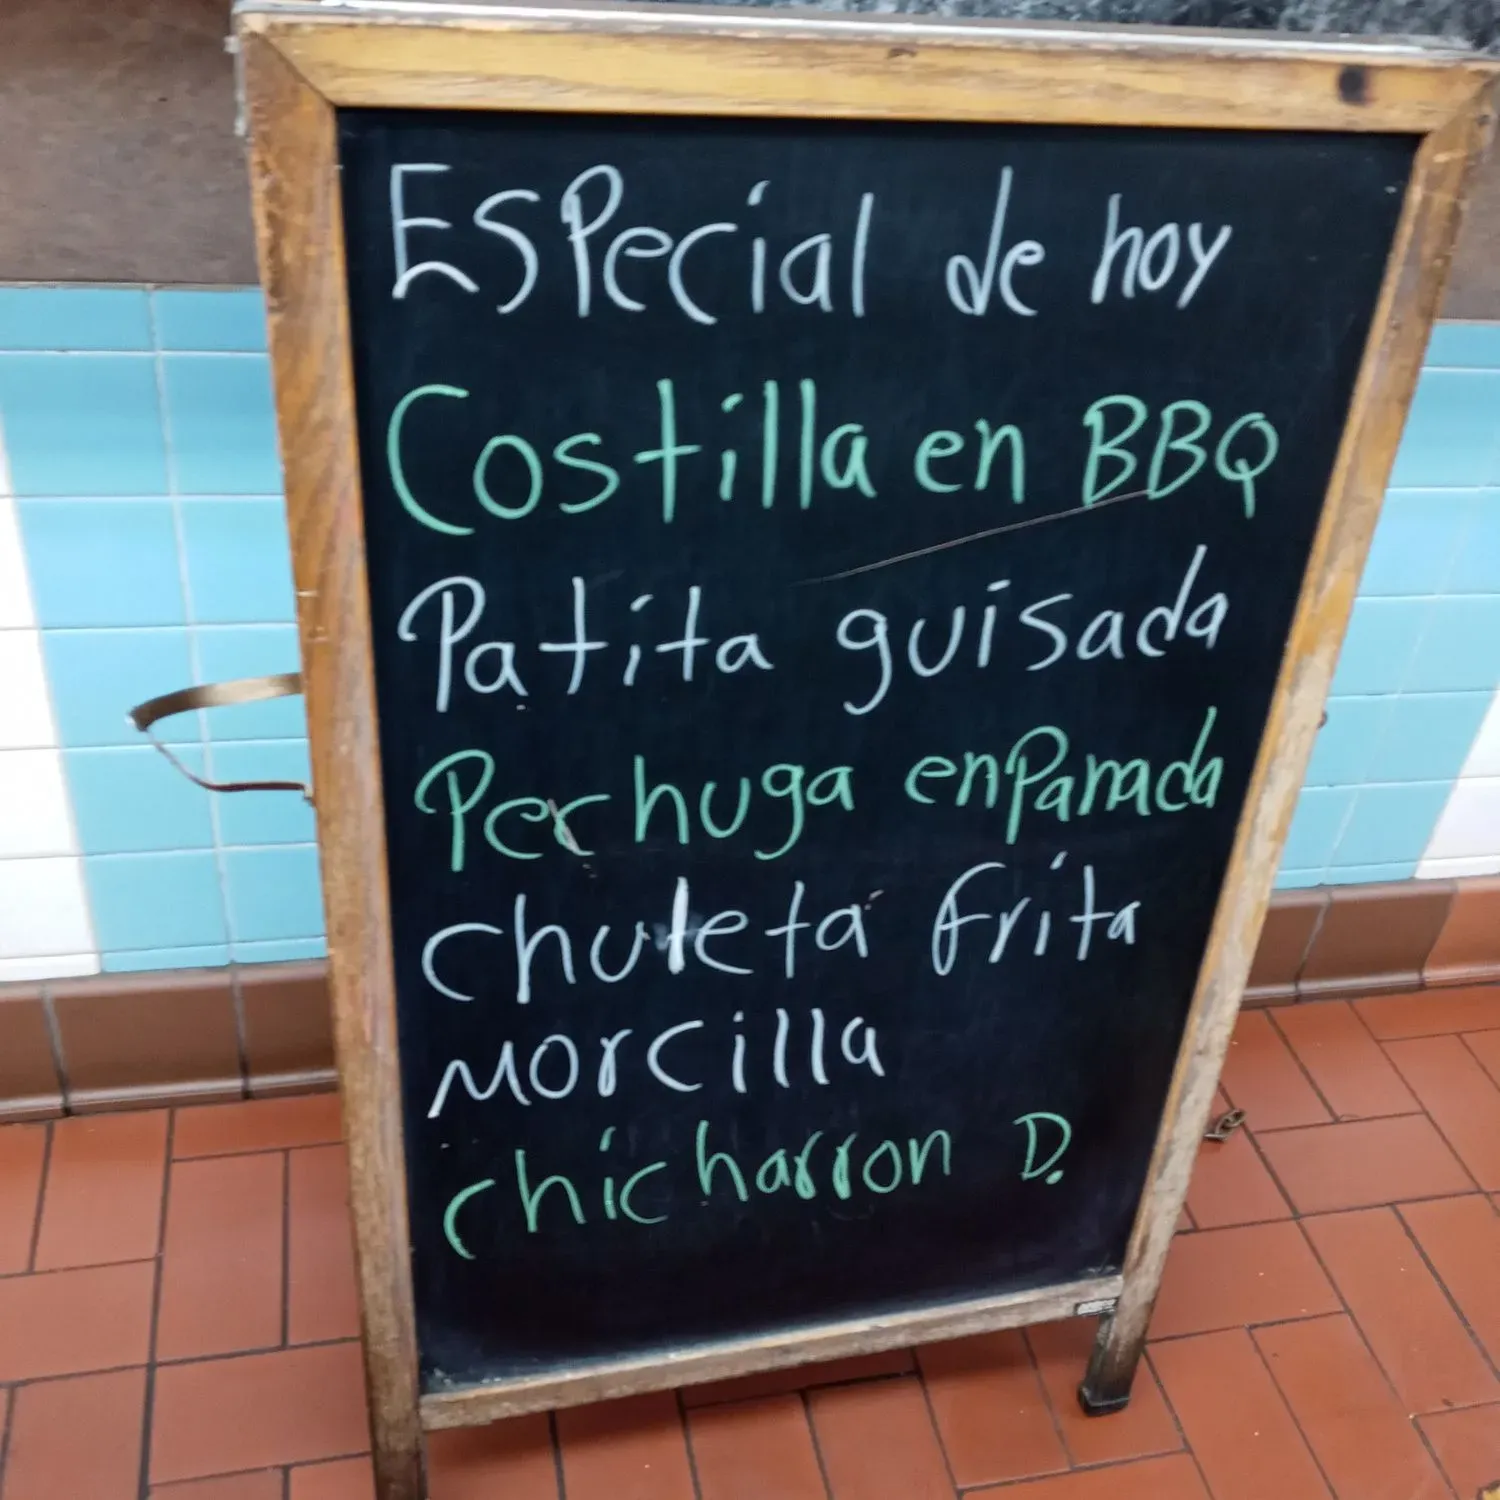 Especial de hoy
Costilla en BBQ
Patita guisada
Perhuga enpanada
chuleta frita
morcilla
chicharron D.